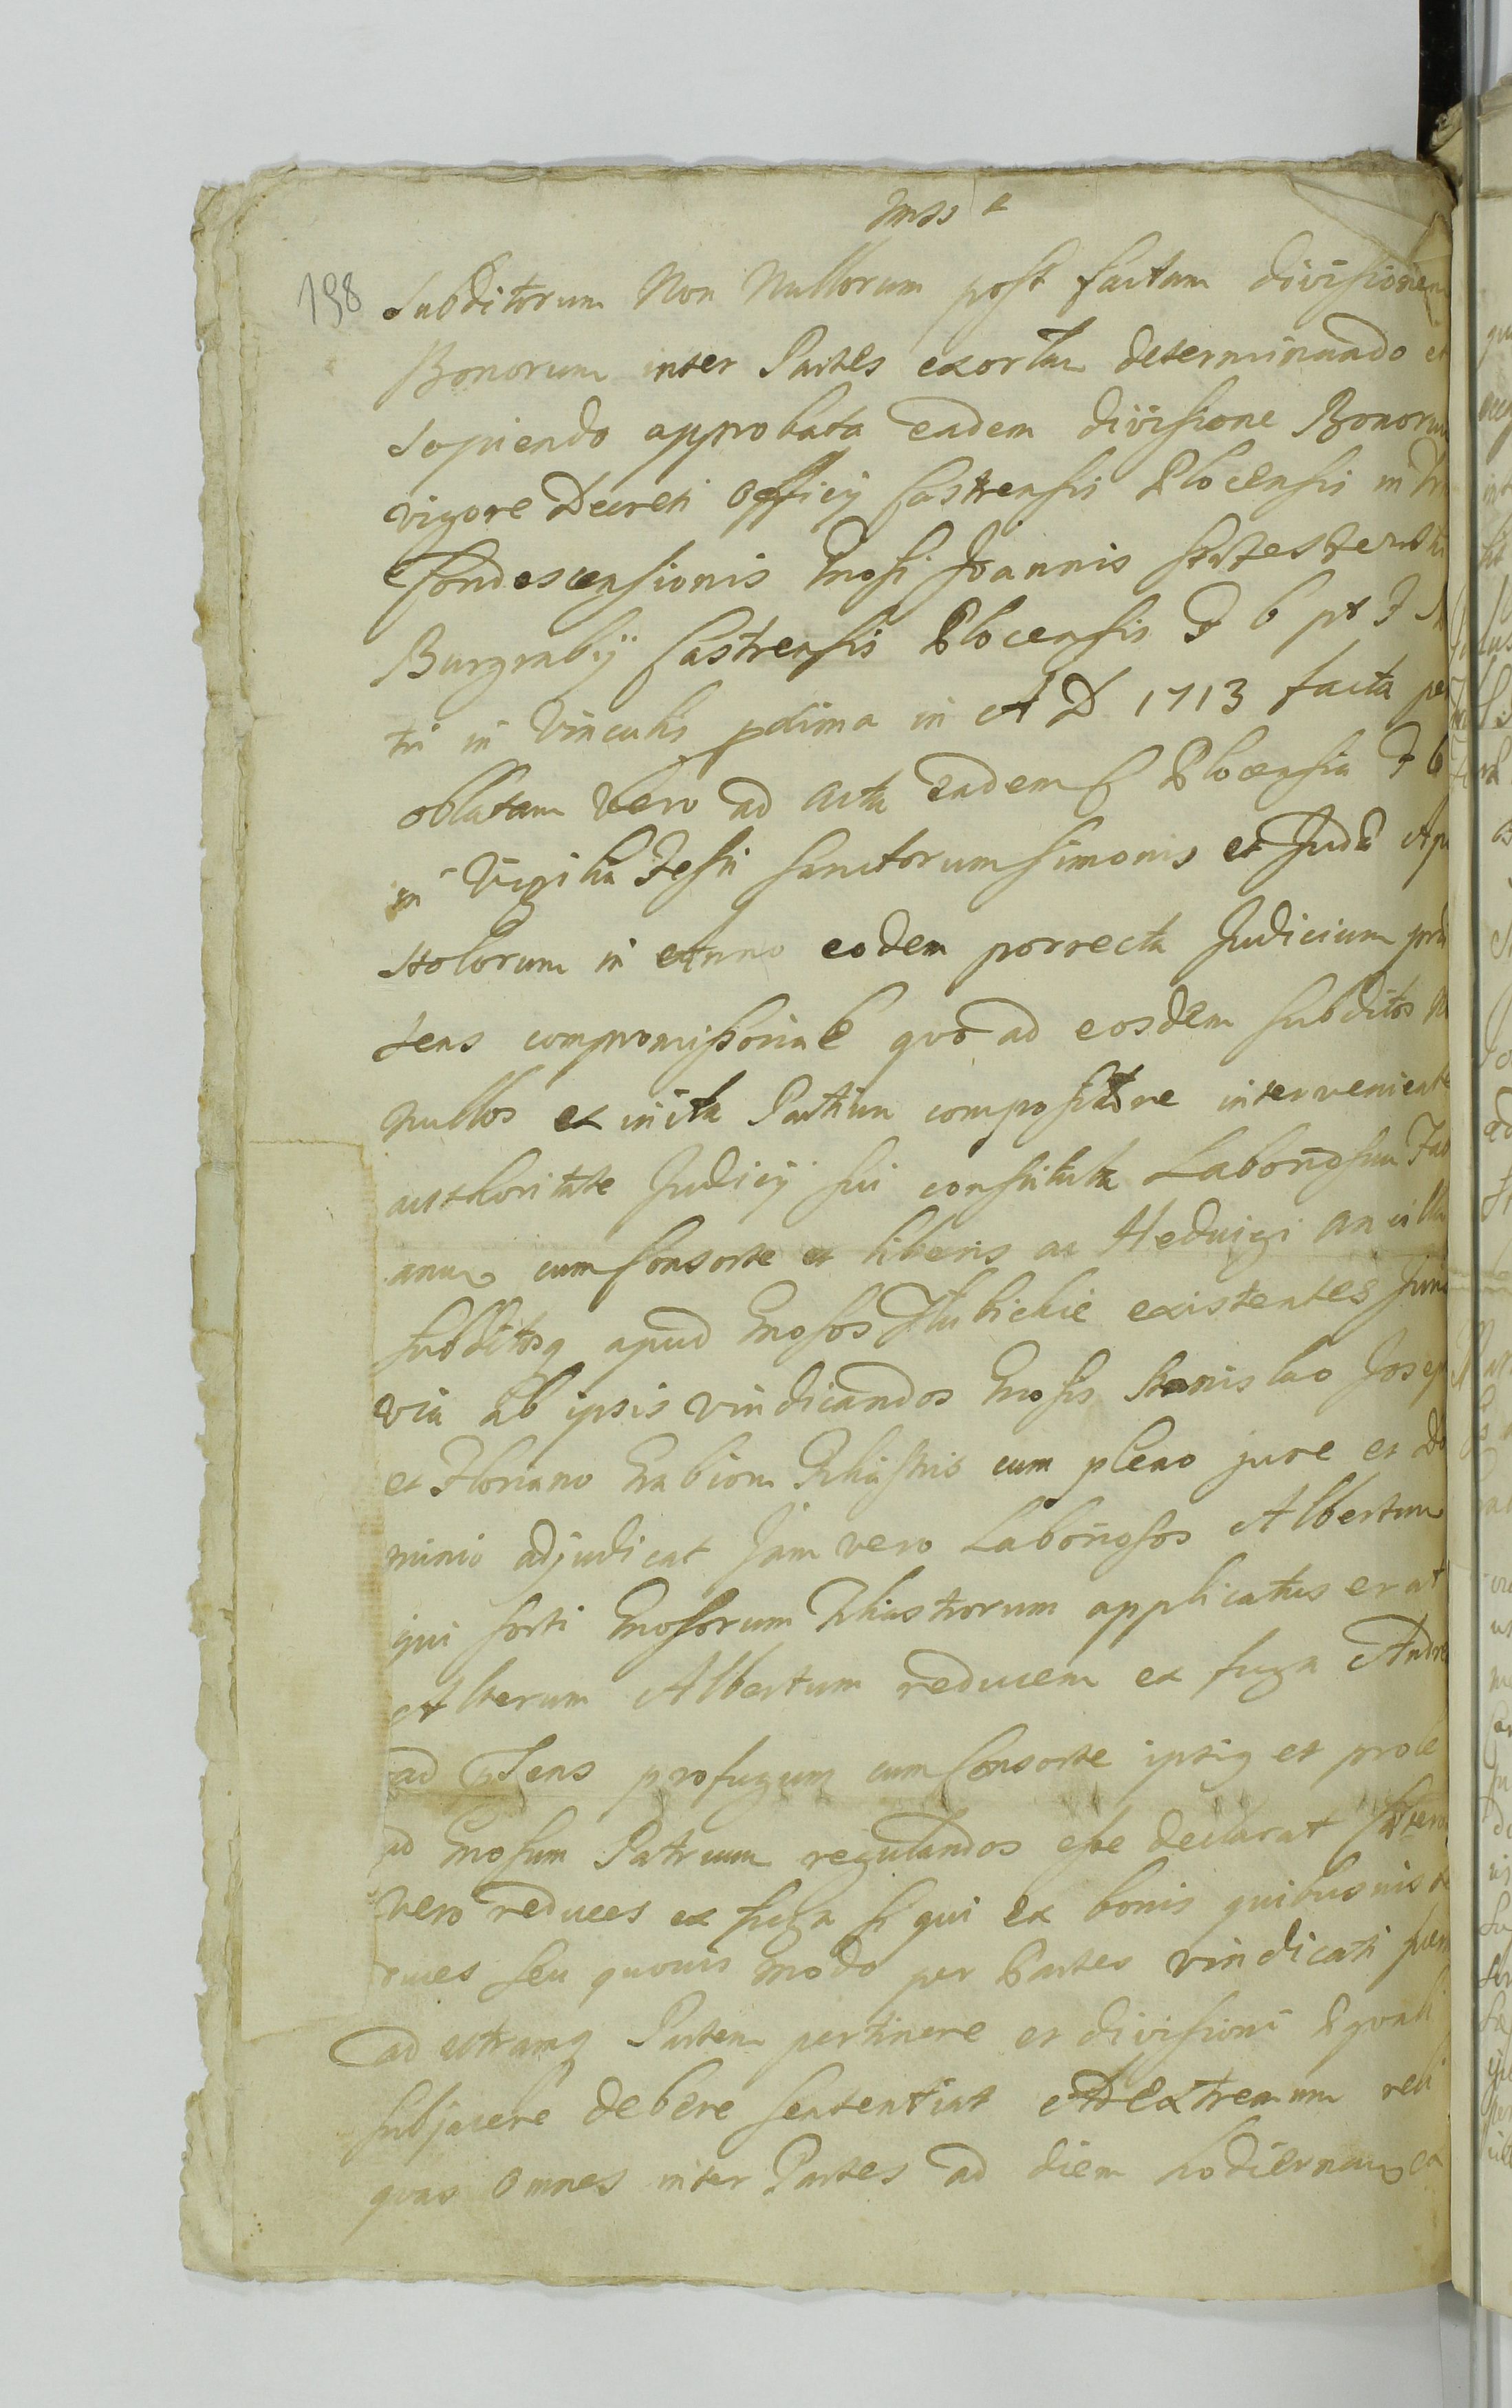 198
Subditorum Non Nullorum post factam divisionem
Bonorum inter Partes exortam determinando et
sopiendo approbata eadem divisione Bonorum
vigore Decreti Officij Castrensis Plocensis in
Condescensionis Gnosi Joannis
Burgrabij Castrensis Plocensis F 6 pt F
tri in Vinculis pxima in A D 1713 facta per
oblatam Vero ad acta eadem C Plocensia F 6
in Vigilia Festi Sanctorum Simonis et Judæ Apo
stolorum in Anno eodem porrecta Judicium præ
sens compromissoriale quo ad eosdem subditos
nullos ex inita Partium compositione interveniente
authoritate Judicij sui constituta Laboriosum Fabi
anum cum Consorte et liberis ac Hedvigi ancilla
subditosq apud Gnosos existentes Juris
via ab ipsis vindicandos Gnosis Stanislao Joseph
et Floriano cum pleno jure et do
minio adjudicat Jam vero Laboriosos Albertum
qui sorti Gnosorum applicatus erat
Alterum Albertum reducem ex fuga Andre
ad psens profugum cum Consorte ipsiq et prole
ad Gnosum Patruum regulandos esse declarat Cæteros
vero reduces ex fuga si qui ex bonis quibusvis
seu quovis modo per Partes vindicati fuer
ad utramq Partem pertinere et divisioni æquali
subjacere debere sententiat Ad extremum reli
quas omnes inter Partes ad diem hodiernam ex